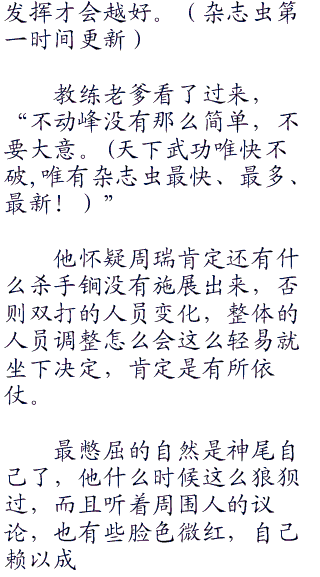 发挥才会越好。（杂志虫第
一时间更新）
教练老爹看了过来，
“不动峰没有那么简单，不
要大意。(天下武功唯快不
破,唯有杂志虫最快、最多、
最新！）”
他怀疑周瑞肯定还有什
么杀手锏没有施展出来，否
则双打的人员变化，整体的
人员调整怎么会这么轻易就
坐下决定，肯定是有所依
仗。
最憋屈的自然是神尾自
己了，他什么时候这么狼狈
过，而且听着周围人的议
论，也有些脸色微红，自己
赖以成